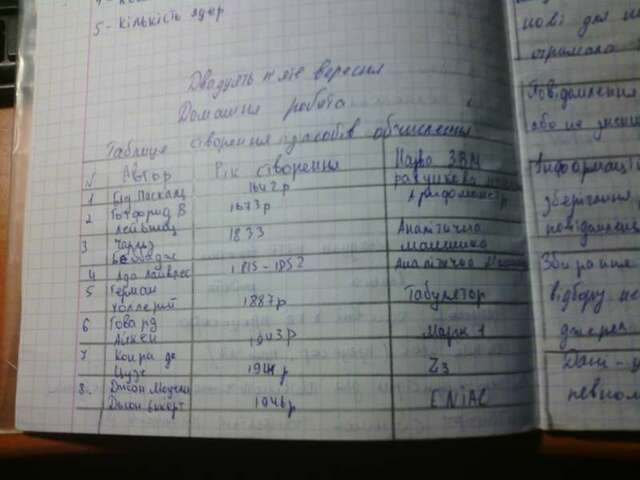 5 - Кількість ядер
Двадцять п'яте вересня
Домашня робота
Таблиця створення засобів обчислення
N Автор Рік створення Назва ЗВМ
1 Блз Паскаль 1642р рахункова
2 Готфрид В 1673р Арифмометр
Лейбніц
3 Чарльз 1833 Аналітична
Беббідж машина
4 Ада Лавлес 1815-1852 Аналітична
5 Герман
Холлеріт 1887р Табулятор
6 Говард
Айкен 1943р Марк 1
7 Конрад де
Цузе 1941р Z3
8. Джон Моучлі
Джон Екерт 1946р ENIAC
нові для
отримала
Повідомлення
або не
Інформаці
зберігання
повідомлень
Збирання
відбору
джерел
Дані - у
певном